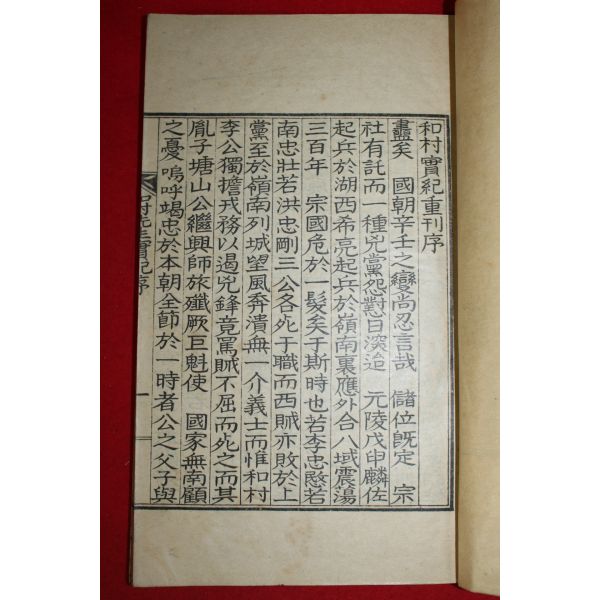 和村實紀重刊序
盡矣 國朝辛壬之變尚忍言哉 儲位旣定 宗
社有託而一種兇黨怨懟日深迨 元陵戊申麟佐
起兵於湖西希亮起兵於嶺南裏應外合八域震蕩
三百年 宗國危於一髮矣于斯時也若李忠愍若
南忠壯若洪忠剛三公各死于職而西賊亦敗於上
黨至於嶺南列城望風奔潰無一介義士而惟和村
李公獨擔戎務以遏兇鋒竟罵賊不屈而死之而其
胤子塘山公繼興師旅殲厥巨魁使 國家無南顧
之憂嗚呼竭忠於本朝全節於一時者公之父子與
和村先生實紀序
一